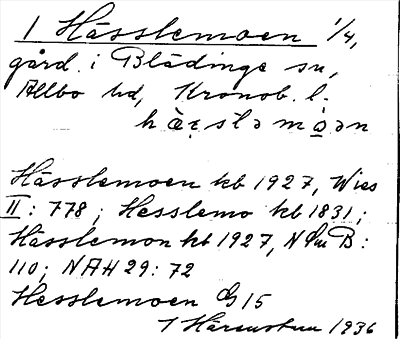 1 Hässlemoen 1/4,
gård i Blädinge sn,
Allbo hd, Kronob. l.
Hässlemoen kb 1927, Wies
II: 778; Hesslemo kb 1831;
Hässlemon kb 1927, N Sm B:
110; NAH 29: 72
Hesslemoen G 15
1936